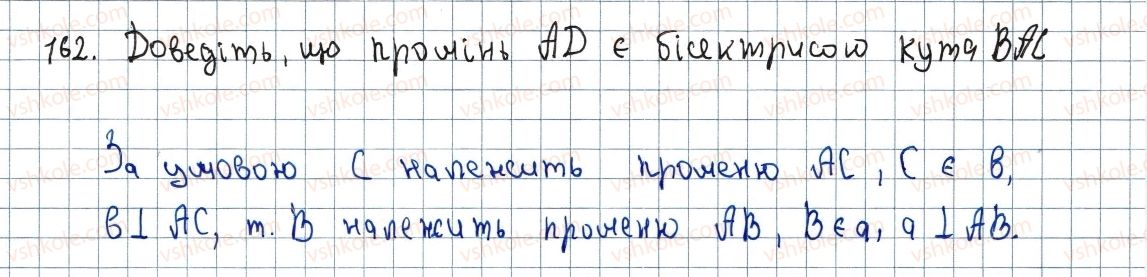 162. Доведіть, що промінь AD є бісектрисою кута BAC
За умовою C належить променю AC, C є в,
в ⊥ AC, т. B належить променю AB, B є a, a ⊥ AB.